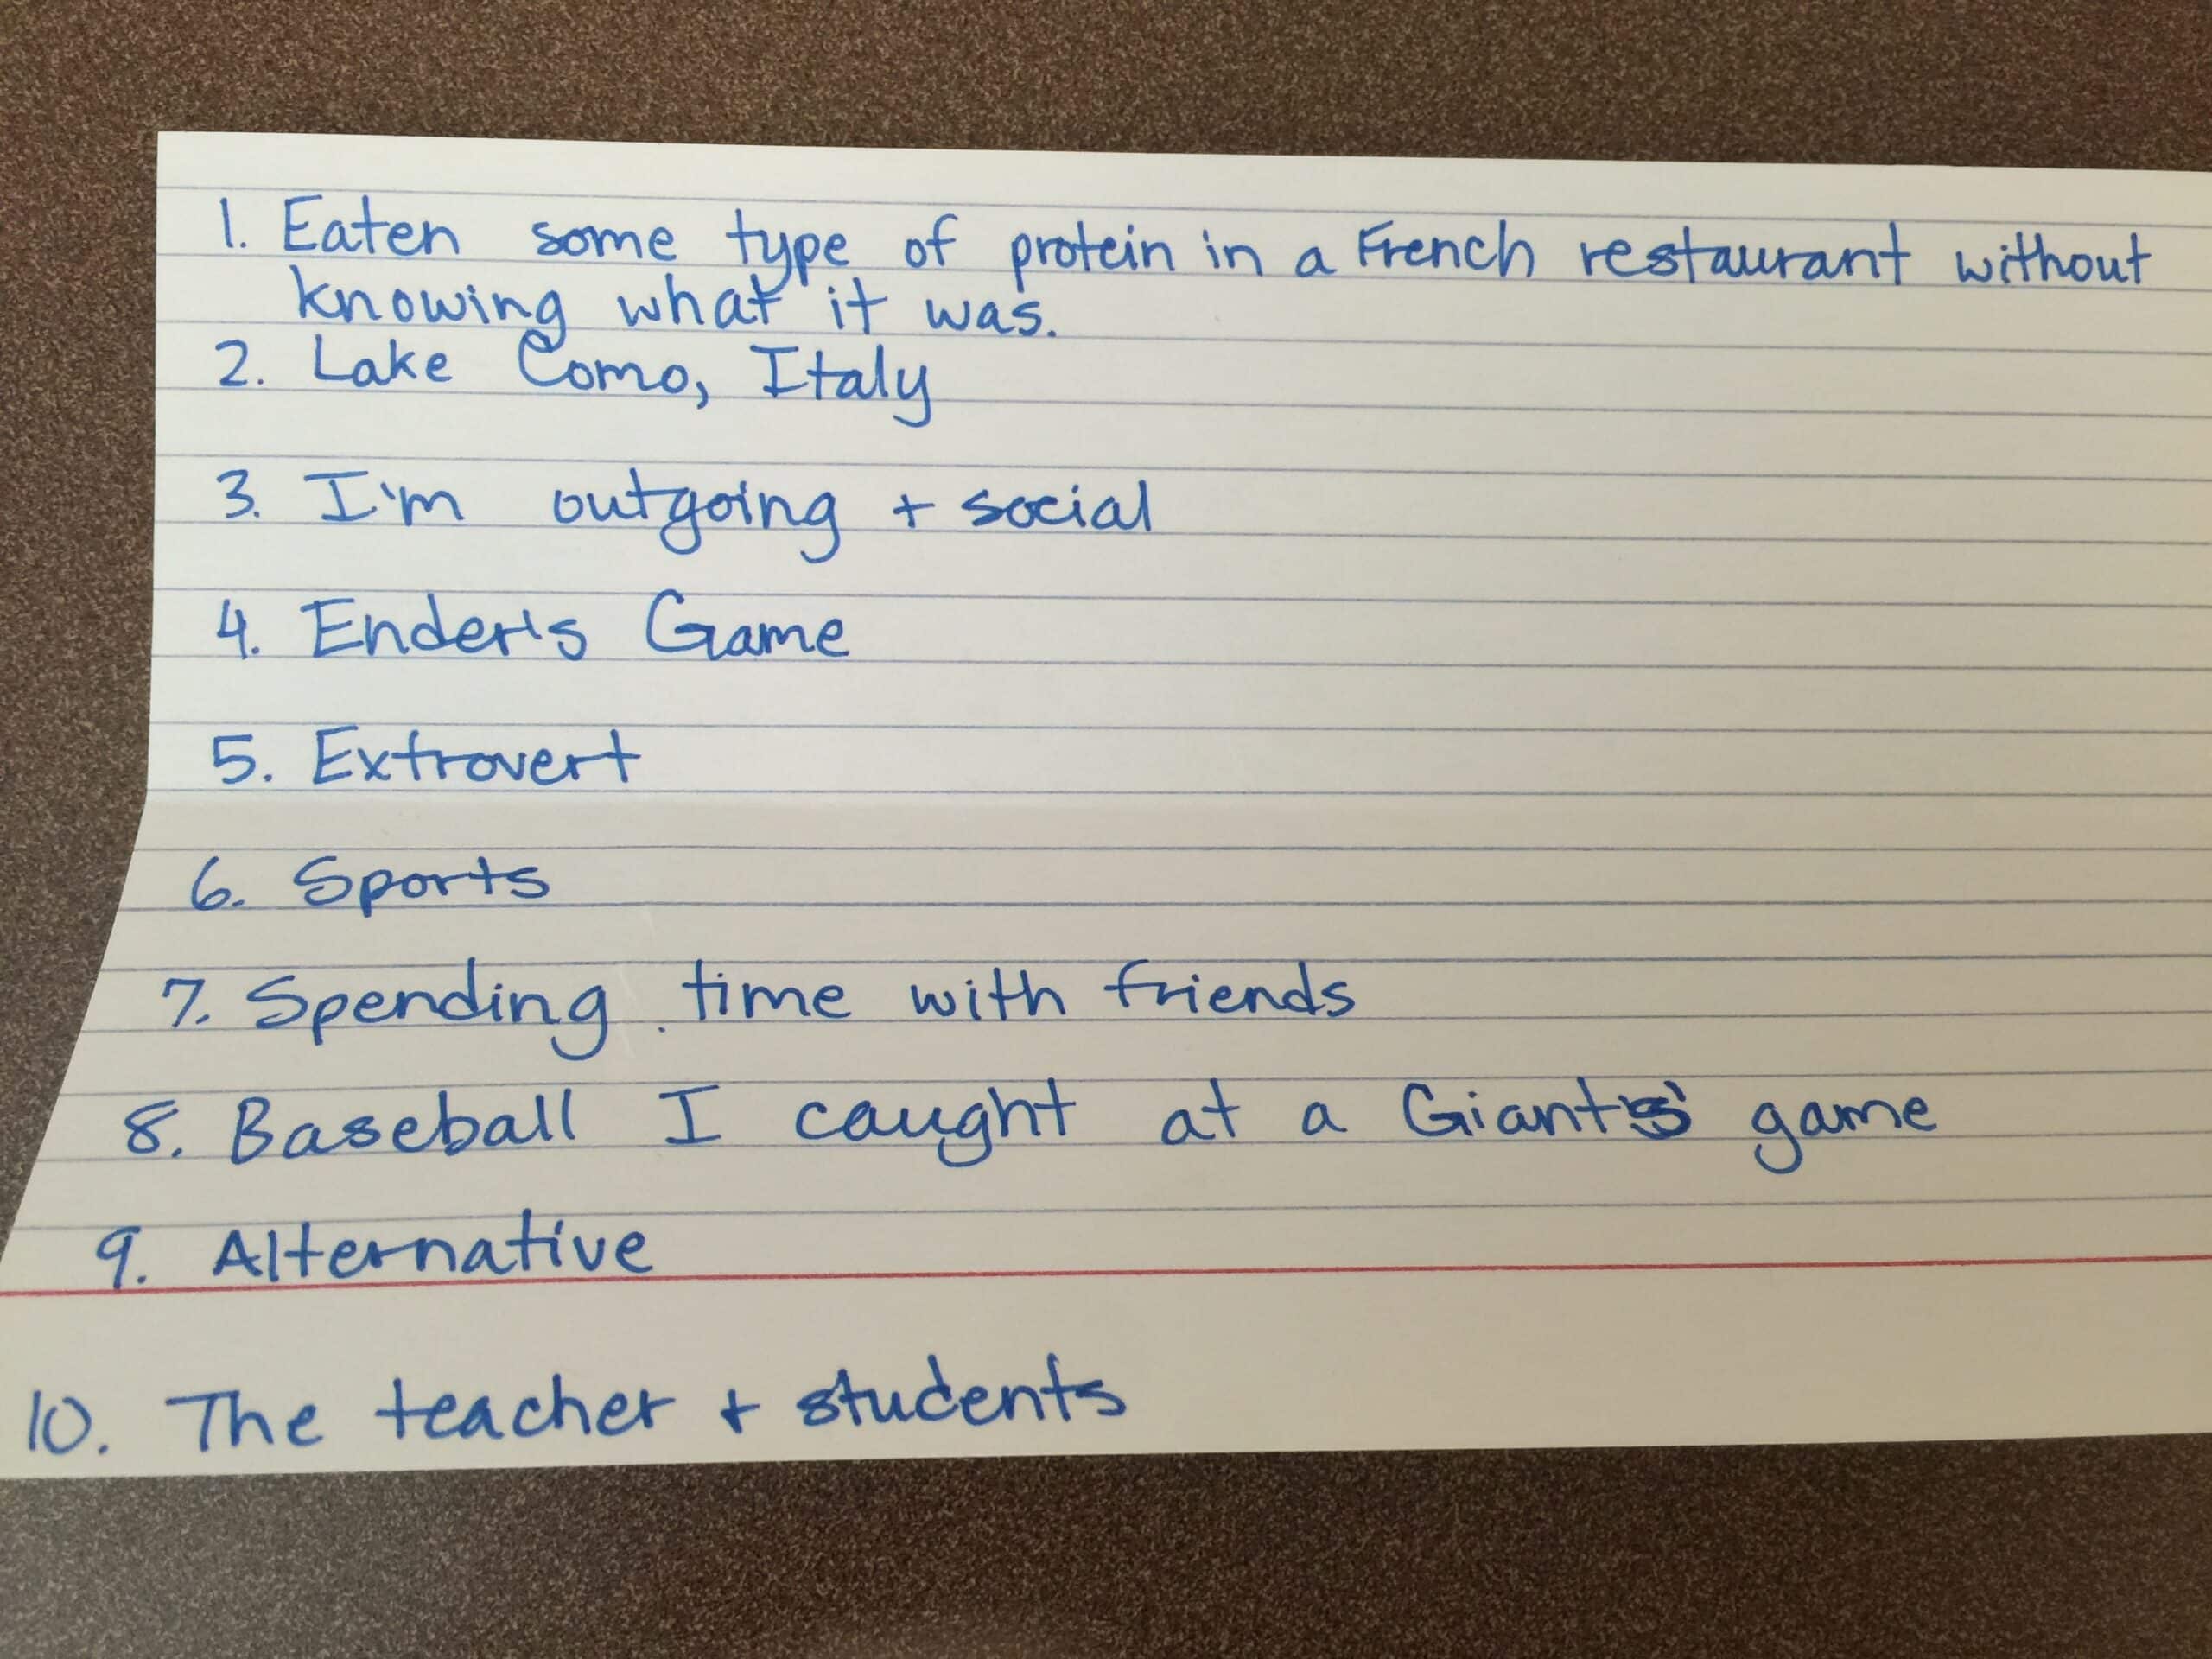 1. Eaten some type of protein in a French restaurant without
knowing what it was.
2. Lake Como, Italy
3. I'm outgoing + social
4. Ender's Game
5. Extrovert
6. Sports
7. Spending time with friends
8. Baseball I caught at a Giants' game
9. Alternative
10. The teacher + students